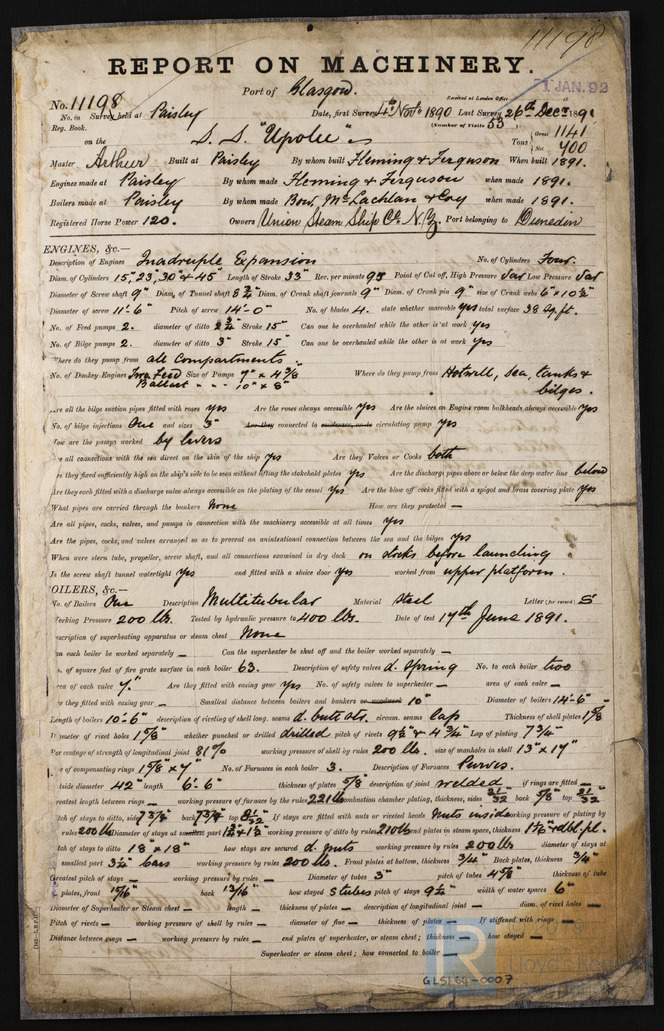 11198
REPORT ON MACHINERY.
Port of Glasgow.
Received at London Office
1 JAN. 92
No. 11198
No. in Survey held at Paisley Date, first Survey 4th Novr 1890 Last Survey 26th Decr 1891
Reg. Book. (Number of Visits 53)
on the S. S. "Upolu" Tons Gross 1141 Net 700
Master Arthur Built at Paisley By whom built Fleming & Ferguson When built 1891.
Engines made at Paisley By whom made Fleming & Ferguson when made 1891.
Boilers made at Paisley By whom made Bow, McLachlan & Coy when made 1891.
Registered Horse Power 120. Owners Union Steam Ship Co. N.Z. Port belonging to Dunedin
ENGINES, &c.—
Description of Engines Quadruple Expansion No. of Cylinders Four.
Diam. of Cylinders 15" 23", 30" & 45" Length of Stroke 33" Rev. per minute 95 Point of Cut off, High Pressure Var Low Pressure Var
Diameter of Screw shaft 9" Diam. of Tunnel shaft 8 3/4" Diam. of Crank shaft journals 9" Diam. of Crank pin 9" size of Crank webs 6" x 10 1/2"
Diameter of screw 11'-6" Pitch of screw 14'-0" No. of blades 4. state whether moveable yes total surface 38 sq. ft.
No. of Feed pumps 2. diameter of ditto 2 3/4" Stroke 15" Can one be overhauled while the other is at work yes
No. of Bilge pumps 2. diameter of ditto 3" Stroke 15" Can one be overhauled while the other is at work yes
Where do they pump from all compartments.
No. of Donkey Engines Two Feed Size of Pumps 7" x 4 3/8" Where do they pump from Hotwell, sea, tanks &
Ballast - - - 10" x 8" bilges.
Are all the bilge suction pipes fitted with roses yes Are the roses always accessible yes Are the sluices on Engine room bulkheads always accessible yes
No. of bilge injections One and sizes 5" Are they connected to condenser, or to circulating pump yes
How are the pumps worked by levers
Are all connections with the sea direct on the skin of the ship yes Are they Valves or Cocks both
Are they fixed sufficiently high on the ship's side to be seen without lifting the stokehold plates yes Are the discharge pipes above or below the deep water line below
Are they each fitted with a discharge valve always accessible on the plating of the vessel yes Are the blow off cocks fitted with a spigot and brass covering plate yes
What pipes are carried through the bunkers None How are they protected —
Are all pipes, cocks, valves, and pumps in connection with the machinery accessible at all times yes
Are the pipes, cocks, and valves arranged so as to prevent an unintentional connection between the sea and the bilges yes
When were stern tube, propeller, screw shaft, and all connections examined in dry dock on stocks before launching
Is the screw shaft tunnel watertight yes and fitted with a sluice door yes worked from upper platform.
OILERS, &c.—
No. of Boilers One Description Multitubular Material Steel Letter (for record) S
Working Pressure 200 lbs. Tested by hydraulic pressure to 400 lbs. Date of test 17th June 1891.
Description of superheating apparatus or steam chest None
Can each boiler be worked separately — Can the superheater be shut off and the boiler worked separately —
No. of square feet of fire grate surface in each boiler 63. Description of safety valves d. Spring No. to each boiler two
Area of each valve 7." Are they fitted with easing gear yes No. of safety valves to superheater — area of each valve —
Are they fitted with easing gear — Smallest distance between boilers and bunkers or woodwork 10" Diameter of boilers 14'-6"
Length of boilers 10'-6" description of riveting of shell long. seams d. butt str. circum. seams lap Thickness of shell plates 1 5/8"
Diameter of rivet holes 1 5/8" whether punched or drilled drilled pitch of rivets 9 1/2" & 4 3/4" Lap of plating 7 3/4"
Percentage of strength of longitudinal joint 81% working pressure of shell by rules 200 lbs. size of manholes in shell 13" x 17"
Size of compensating rings 1 5/8" x 7" No. of Furnaces in each boiler 3. Description of Furnaces Purves.
Outside diameter 42" length 6'-6" thickness of plates 5/8" description of joint welded if rings are fitted —
Greatest length between rings — working pressure of furnace by the rules 221 lbs combustion chamber plating, thickness, sides 21/32" back 5/8" top 21/32"
Pitch of stays to ditto, sides 7 3/8" back 7 3/8" top 8 1/32" If stays are fitted with nuts or riveted heads Nuts inside working pressure of plating by
rules 200 lbs Diameter of stays at smallest part 1 3/4" & 1 1/2" working pressure of ditto by rules 210 lbs end plates in steam space, thickness 1 1/16" & dbl. pl.
Pitch of stays to ditto 18" x 18" how stays are secured d. nuts working pressure by rules 200 lbs diameter of stays at
smallest part 3 1/4" bars working pressure by rules 200 lbs. Front plates at bottom, thickness 3/4" Back plates, thickness 3/4"
Greatest pitch of stays — working pressure by rules — Diameter of tubes 3" pitch of tubes 4 5/8" thickness of tube
plates, front 15/16" back 13/16" how stayed S tubes pitch of stays 9 1/4" width of water spaces 6"
Diameter of Superheater or Steam chest — length — thickness of plates — description of longitudinal joint — diam. of rivet holes —
Pitch of rivets — working pressure of shell by rules — diameter of flue — thickness of plates — If stiffened with rings —
Distance between rings — working pressure by rules — end plates of superheater, or steam chest; thickness — how stayed —
Superheater or steam chest; how connected to boiler —
GLS164-0007